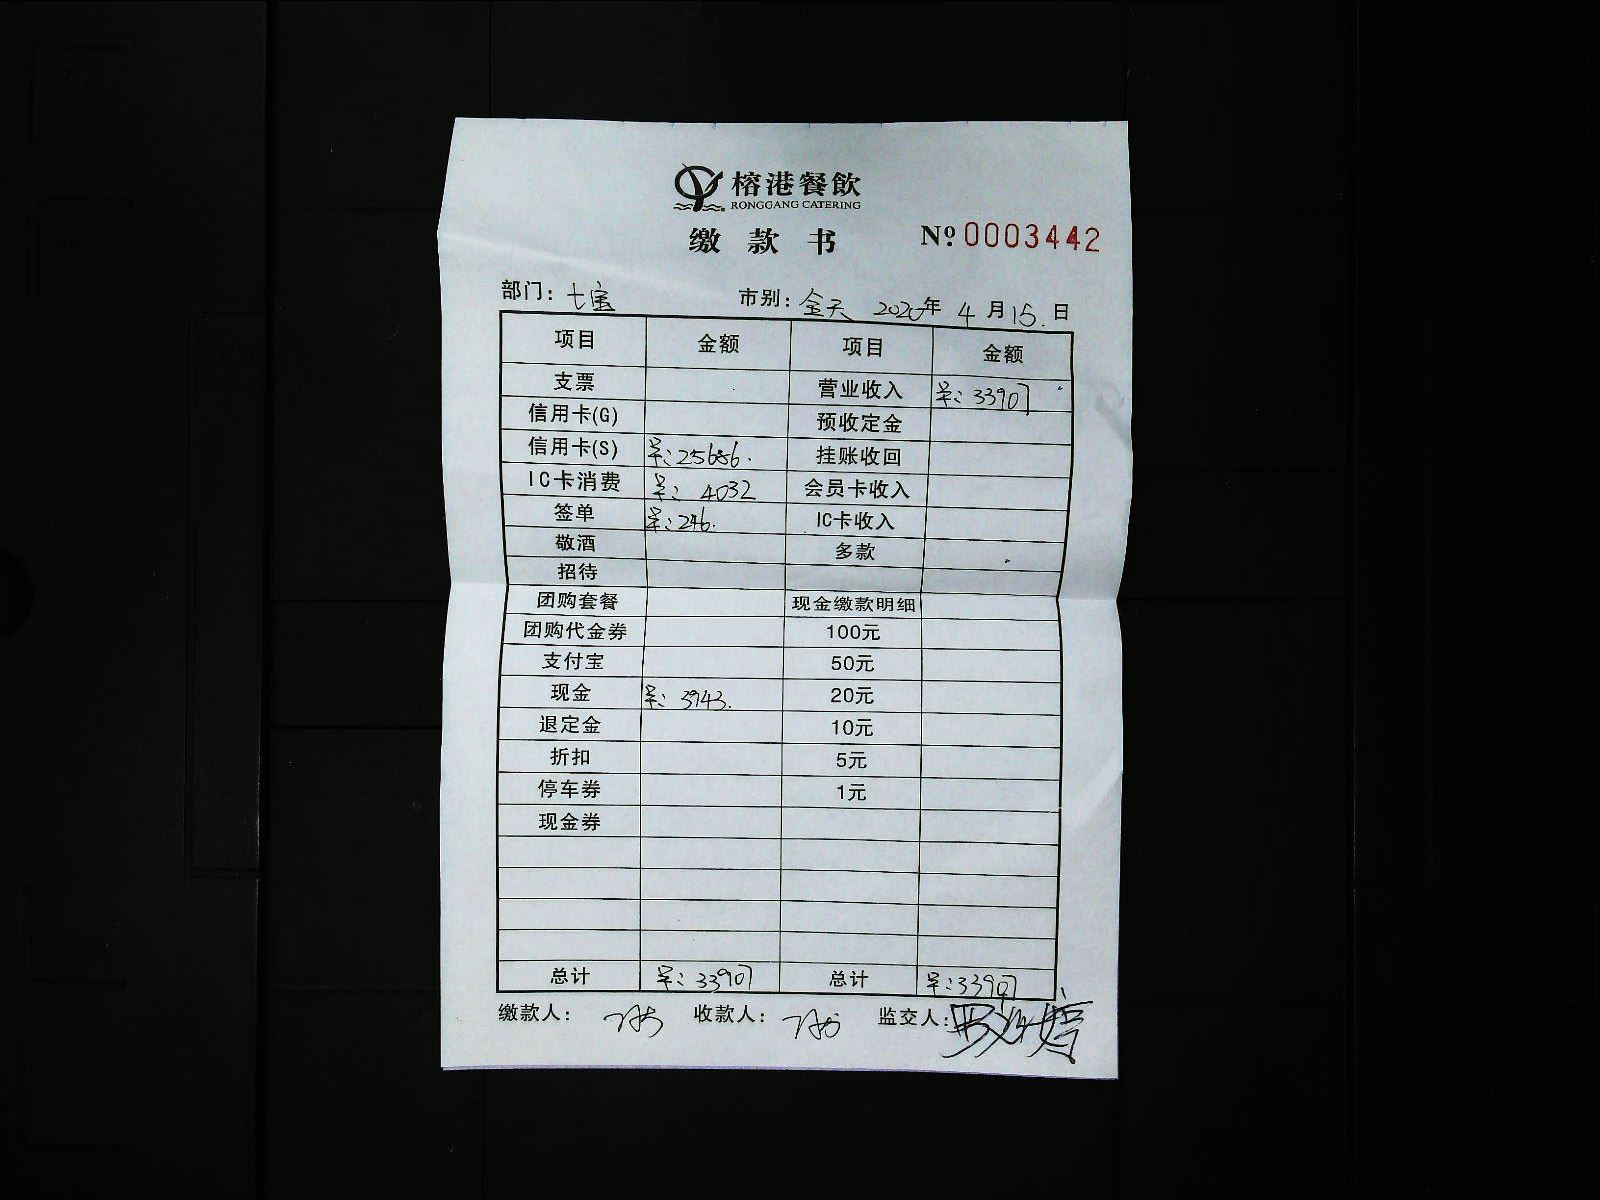 榕港餐飲
RONGGANG CATERING
缴款书 Nº 0003442
部门: 七宝 市别: 全天 2020年 4月15.日
项目 金额 项目 金额
支票 营业收入 ¥: 33907
信用卡(G) 预收定金
信用卡(S) ¥: 25686. 挂账收回
IC卡消费 ¥: 4032 会员卡收入
签单 ¥: 246. IC卡收入
敬酒 多款
招待
团购套餐 现金缴款明细
团购代金券 100元
支付宝 50元
现金 ¥: 3943. 20元
退定金 10元
折扣 5元
停车券 1元
现金券
总计 ¥: 33907 总计 ¥: 33907
缴款人: 收款人: 监交人: